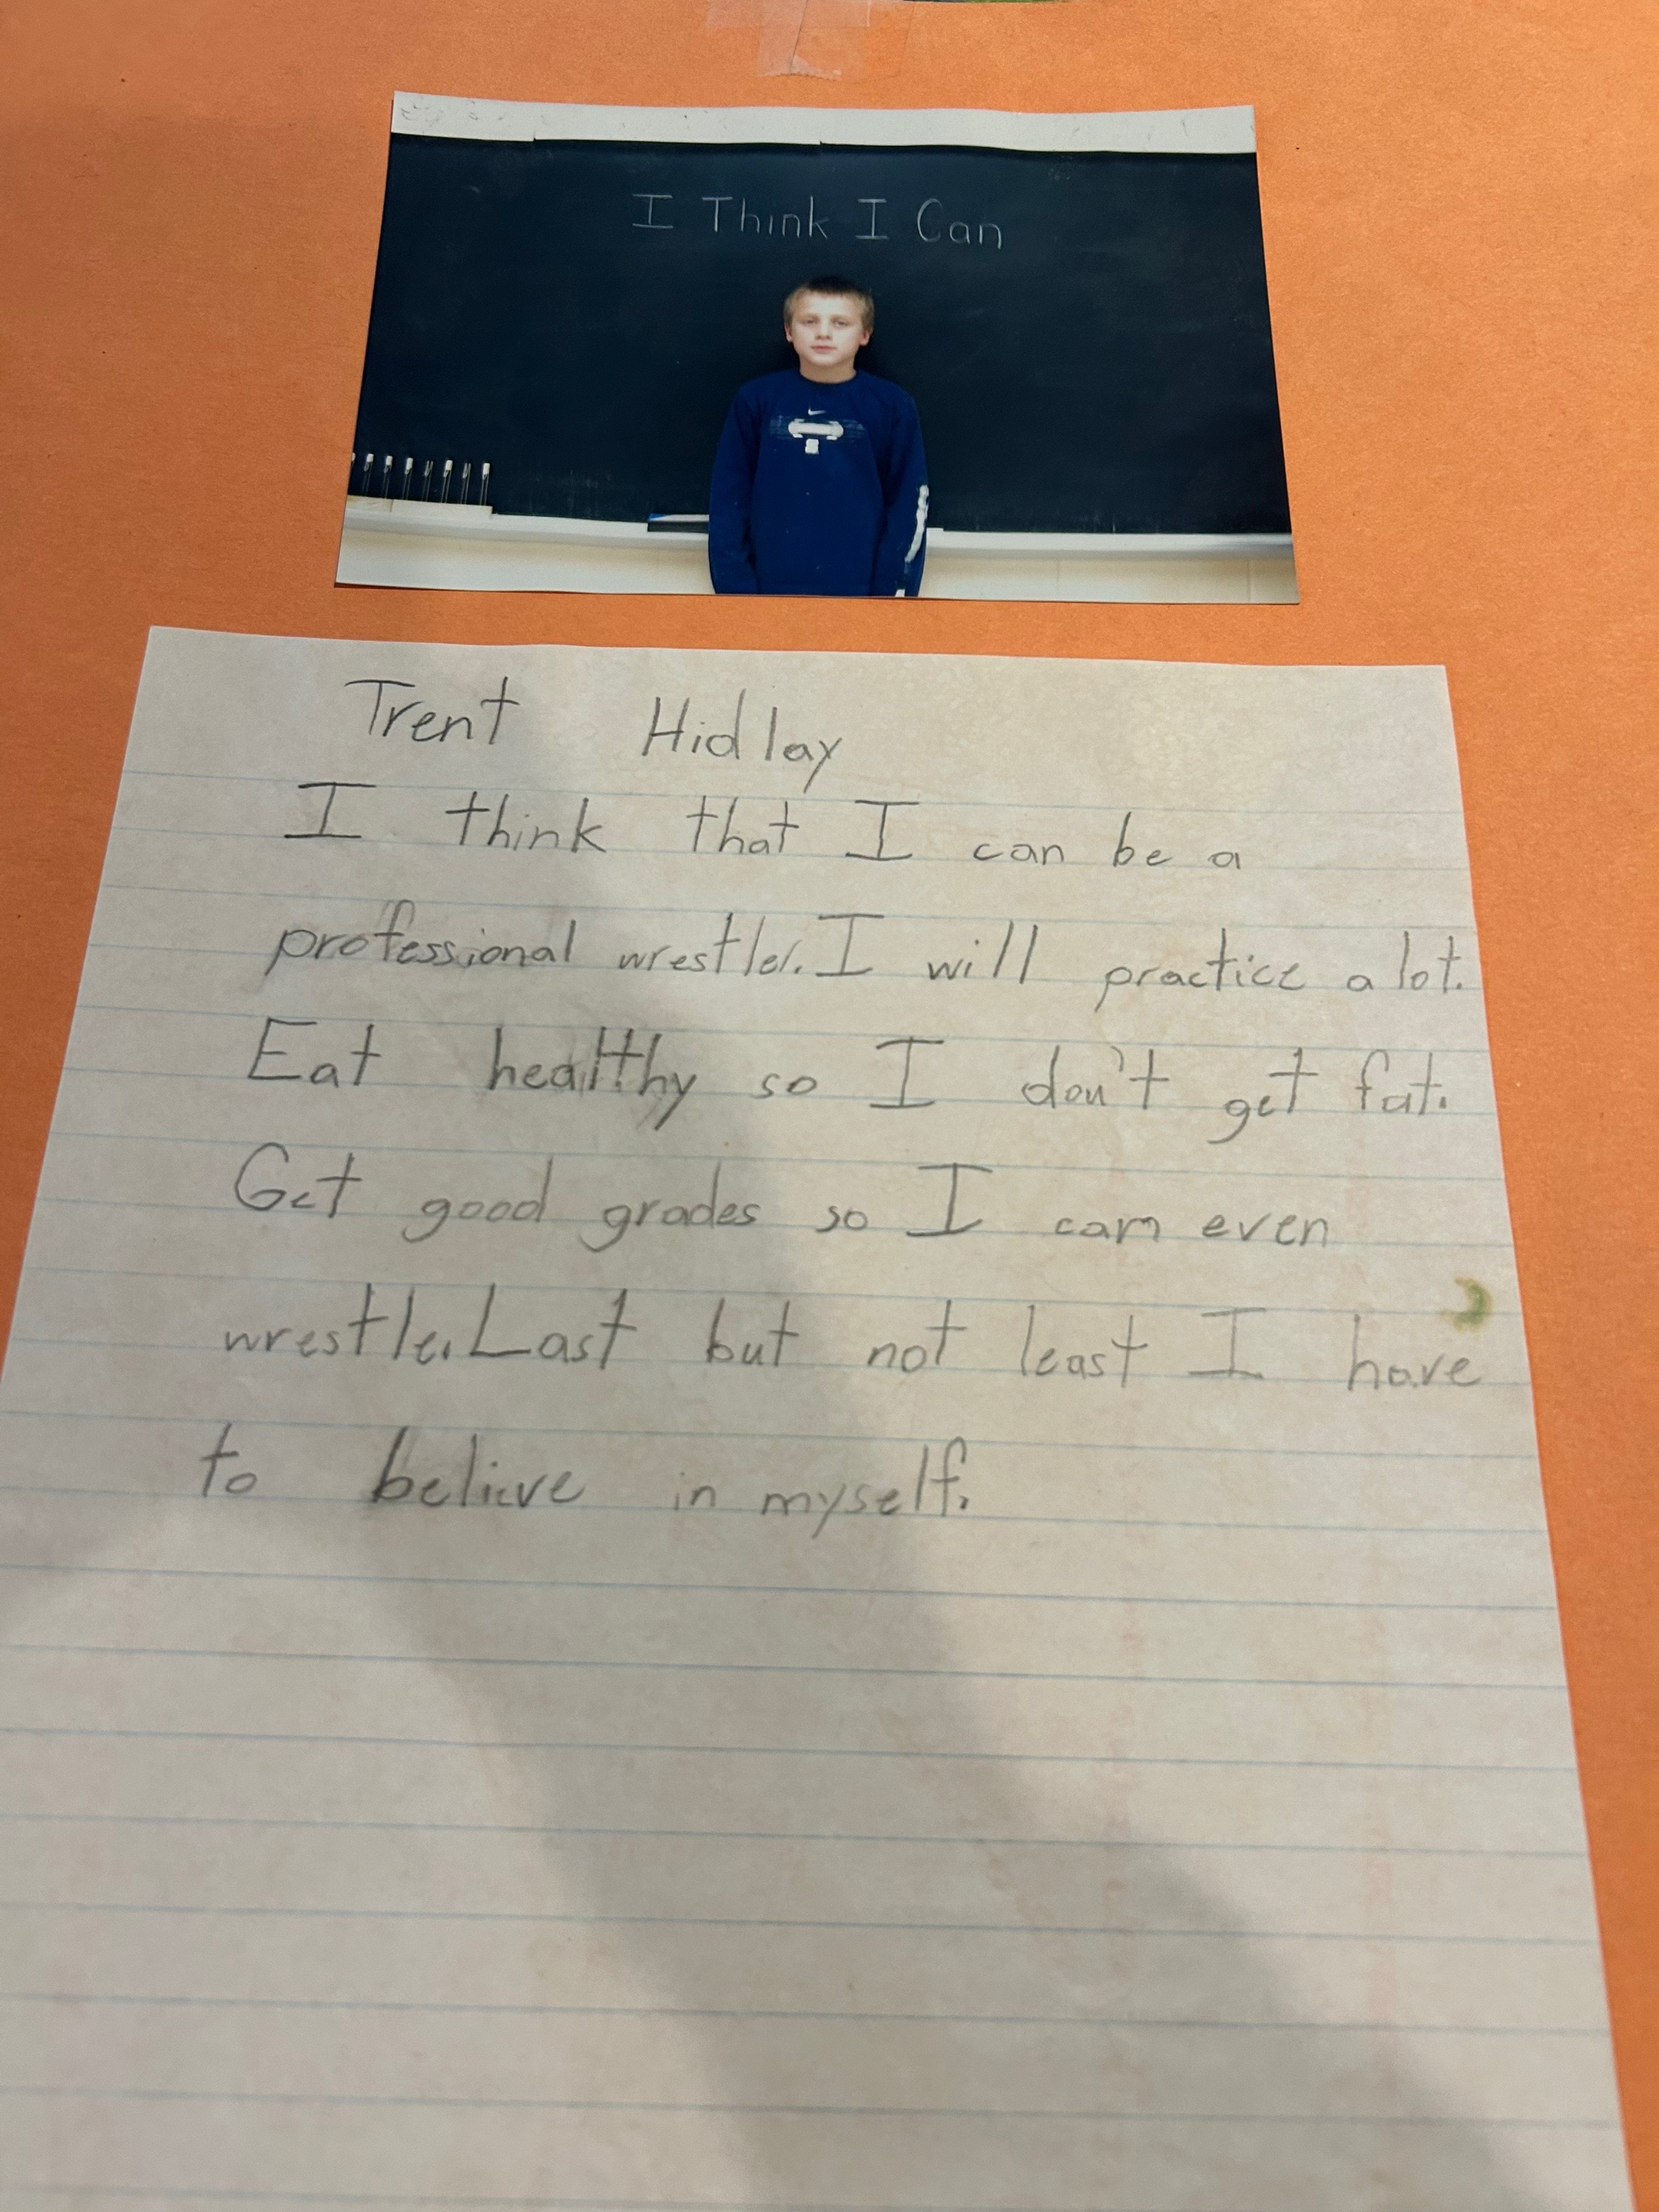 I Think I Can
Trent Hidlay
I think that I can be a
professional wrestler. I will practice a lot.
Eat healthy so I don't get fat.
Get good grades so I can even
wrestle. Last but not least I have
to believe in myself.